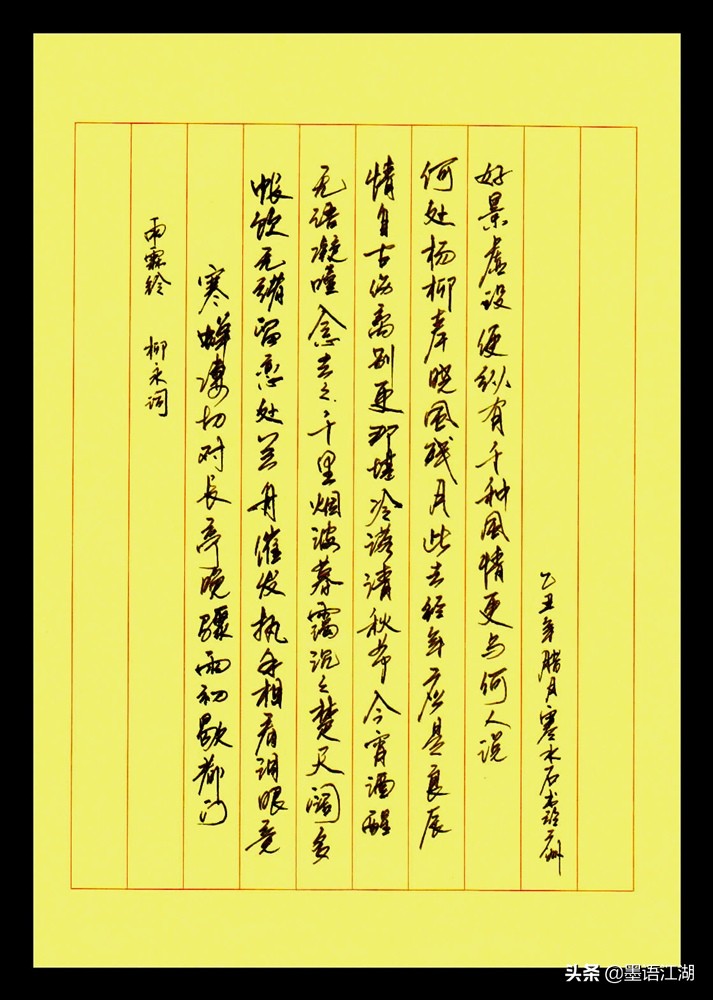 雨霖铃 柳永词
寒蝉凄切对长亭晚骤雨初歇都门
帐饮无绪留恋处兰舟催发执手相看泪眼竟
无语凝噎念去々千里烟波暮霭沉々楚天阔多
情自古伤离别更那堪冷落清秋节今宵酒醒
何处杨柳岸晓风残月此去经年应是良辰
好景虚设便纵有千种风情更与何人说
乙丑年腊月寒水石书於广州
头条 @墨语江湖